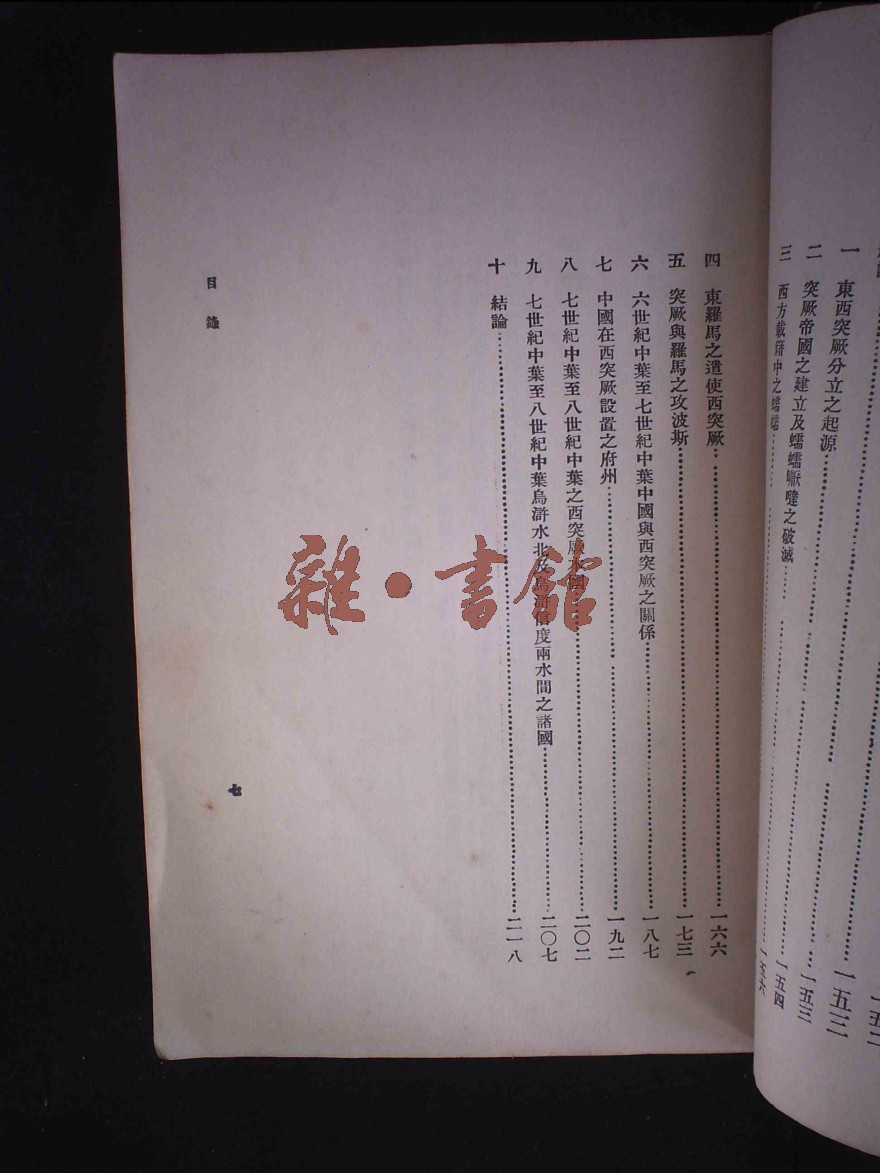 一五二
一 東西突厥分立之起源 一五三
二 突厥帝國之建立及蠕蠕嚈噠之破滅 一五三
三 西方載籍中之蠕蠕 一五四
一五六
四 東羅馬之遣使西突厥 一六六
五 突厥與羅馬之攻波斯 一七三
六 六世紀中葉至七世紀中葉中國與西突厥之關係 一八七
七 中國在西突厥設置之府州 一九二
八 七世紀中葉至八世紀中葉之西突厥本國 二〇二
九 七世紀中葉至八世紀中葉烏滸水北及烏滸信度兩水間之諸國 二〇七
十 結論 二一八
目錄
七
雜·書館